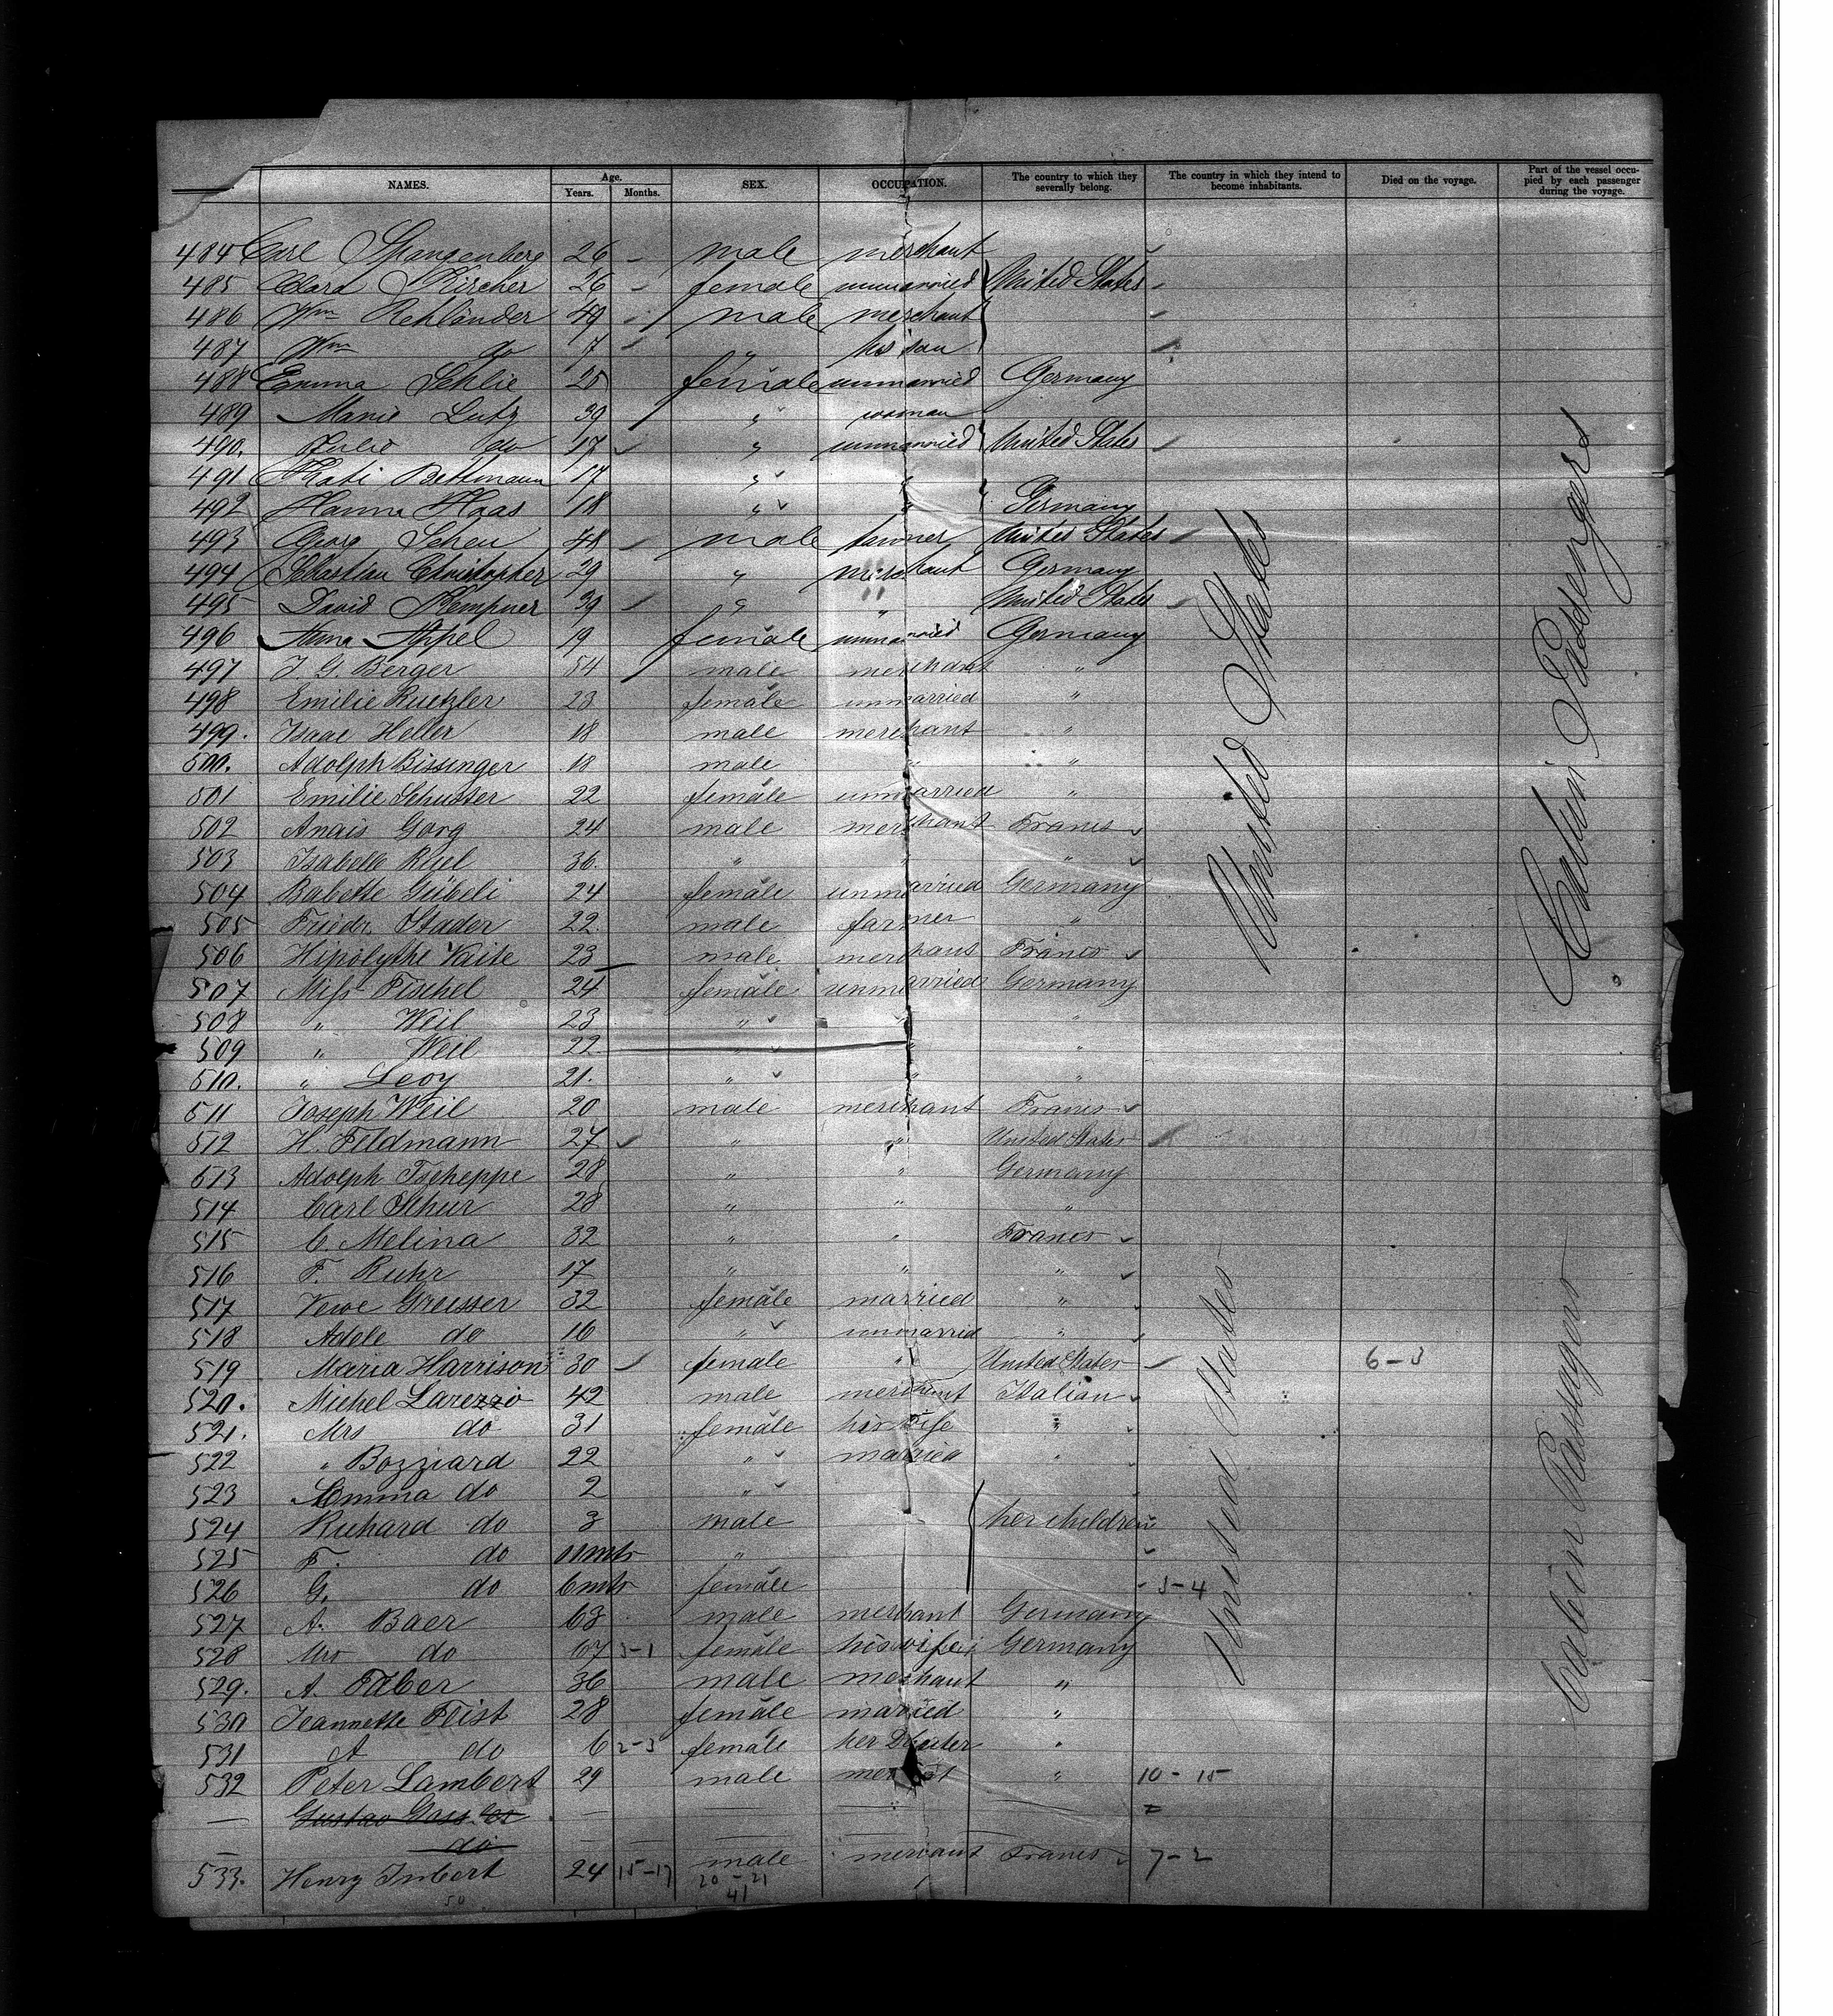 NAMES. Age. Years. Months. SEX. OCCUPATION. The country to which they severally belong. The country in which they intend to become inhabitants. Died on the voyage. Part of the vessel occupied by each passenger during the voyage.
484 Carl Spangenberg 26 - male merchant
485 Clara Kircher 26 - female unmarried United States
486 Wm Rehländer 49 male merchant
487 Wm do 7 " his son
488 Emma Schlie 25 female unmarried Germany
489 Marie Lutz 39 " woman
490. Julie do 17 " unmarried United States
491 Kati Bettmann 17 " "
492 Hanna Haas 18 " " Germany
493 Georg Scheu 48 - male United States
494 Sebastian Christopher 29 " merchant Germany
495 David Kempner 39 " " United States
496 Anna Appel 19 female unmarried Germany
497 J. G. Berger 54 male merchant "
498 Emilie Ruetzler 23 female unmarried "
499. Isaac Heller 18 male merchant "
500. Adolph Bissinger 18 male " "
501 Emilie Schusser 22 female unmarried "
502 Anais Gorg 24 male merchant France
503 Isabelle 36. " " "
504 Babette Gübeli 24 female unmarried Germany
505 Frieder. Stader 22 male farmer "
506 Hipolythe Vaite 23 male merchant France
507 Miss Fischel 24 female unmarried Germany
508 " Weil 23 " " "
509 " Weil 22 " " "
510. " Levy 21. " " "
511 Joseph Weil 20 male merchant France
512 H. Feldmann 27 " " United States
513 Adolph Tscheppe 28 " " Germany
514 Carl Schur 28 " " "
515 C. Melina 32 " " France
516 F. Ruhr 17 " " "
517 Greisser 32 female married "
518 Adele do 16 " unmarried "
519 Maria Harrison 30 female " United States 6-3
520. Michel Larezzo 42 male merchant Italian
521. Mrs do 31 female his wife "
522 " Bozziard 22 " married "
523 Emma do 2 "
524 Richard do 3 male her children
525 F. do 11 mts "
526 G. do 6 mts female - 3-4
527 A. Baer 63 male merchant Germany
528 Mrs do 67 3-1 female his wife Germany
529. A. Faber 36 male merchant "
530 Jeannette Feist 28 female married "
531 A do 6 2-3 female her "
532 Peter Lambert 29 male " 10-15
— Gustav
do
533. Henry Imbert 24 15-17 male merchant France 7-2
20-21
41
50
United States
Cabin Passengers
United States
Cabin Passagers